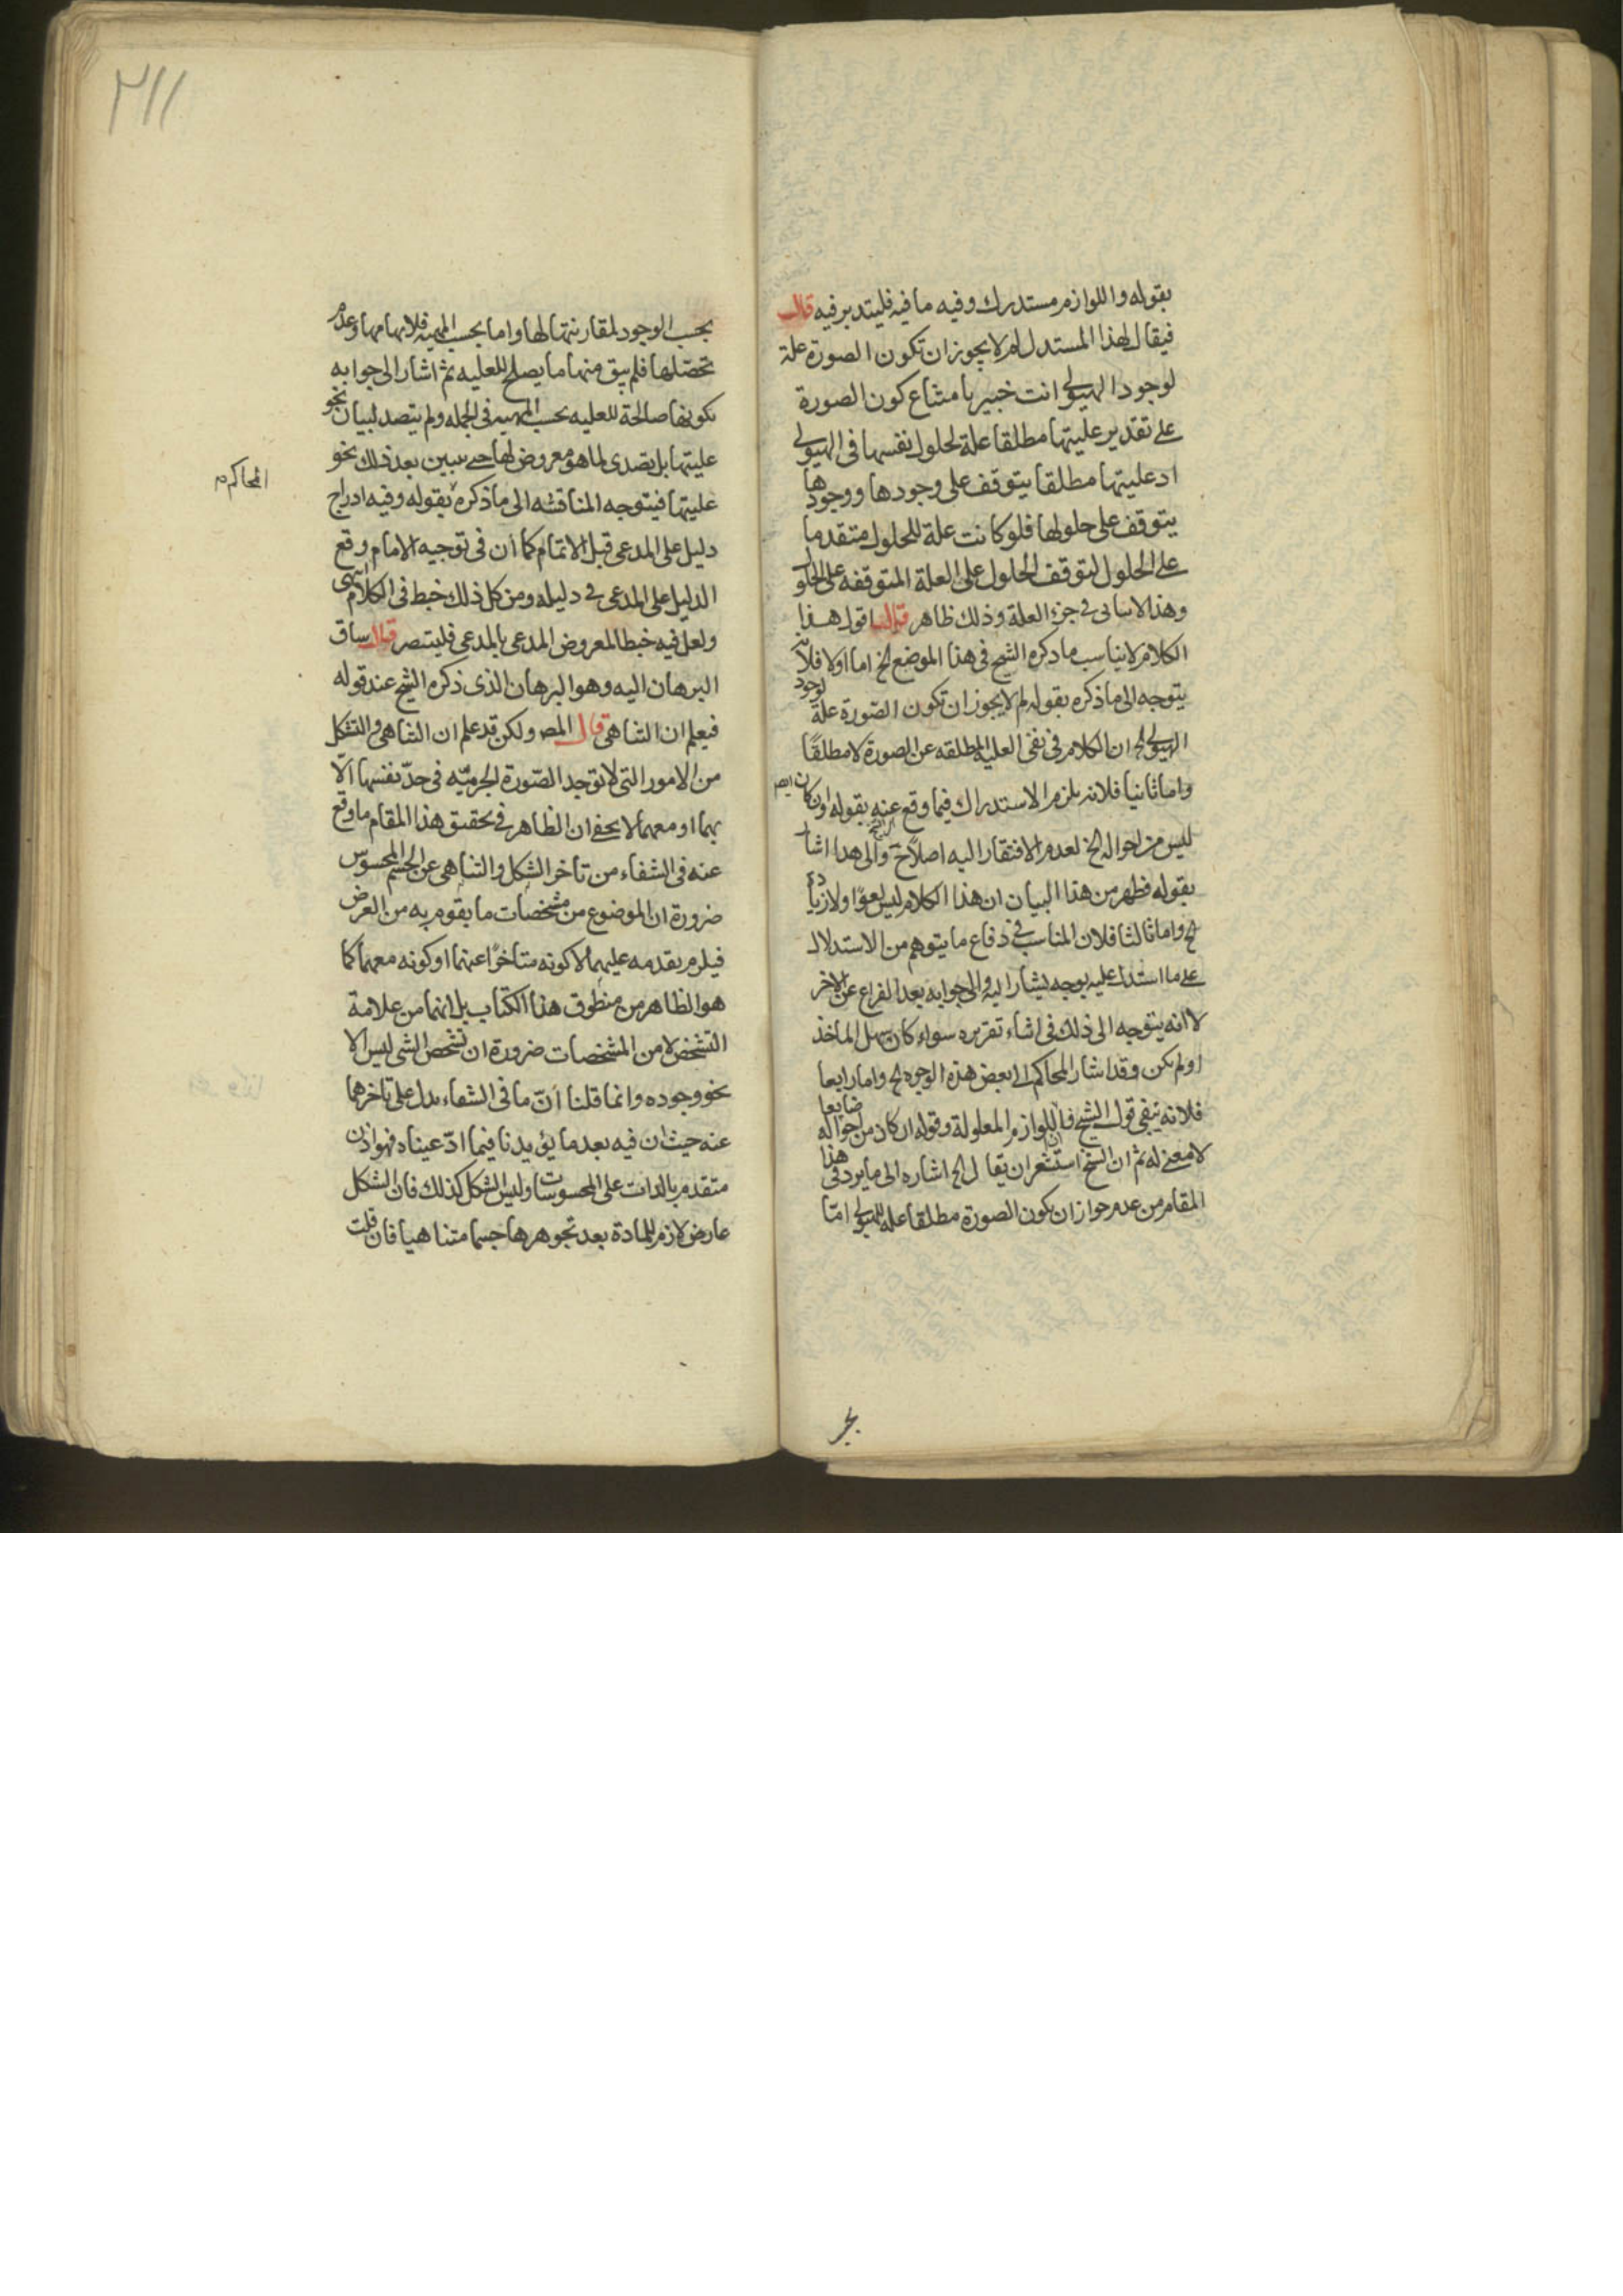 بقوله واللوازم مستدرك وفيه ما فيه فليتدبر فيه قال
فيقال لهذا المستدل لم لا يجوز ان تكون الصورة علة
لوجود الهيولى انت خبير بامتناع كون الصورة
على تقدير عليتها مطلقا علة لحلول نفسها فى الهيولى
اذ عليتها مطلقا يتوقف على وجودها ووجودها
يتوقف على حلولها فلو كانت علة للحلول متقدما
على الحلول لتوقف الحلول على العلة المتوقفه على الحلول
وهذا لا يتاتى فى جزء العلة وذلك ظاهر قال اقول هذا
الكلام لا يناسب ما ذكره الشيخ فى هذا الموضع الخ اما اولا فلانه
يتوجه الى ما ذكره بقوله لم لا يجوز ان تكون الصورة علة لوجود
الهيولى الخ ان الكلام فى نفى العلية المطلقه عن الصورة لا مطلقا
واما ثانيا فلانه يلزم الاستدراك فيما وقع عنه بقوله وان كان ايضا
ليس من احواله الخ لعدم الافتقار اليه اصلا ح والى هذا اشار الشيخ
بقوله فظهر من هذا البيان ان هذا الكلام ليس لغوا ولا زيادة
ح واما ثالثا فلان المناسب فى دفاع ما يتوهم من الاستدلال
على ما استدل عليه بوجه يشار اليه والى جوابه بعد الفراغ عن الاخر
لا انه يتوجه الى ذلك فى اثناء تقريره سواء كان سهل الماخذ
او لم يكن وقد اشار المحاكم الى بعض هذه الوجوه ح واما رابعا
فلانه يبقى قول الشيخ فان اللوازم المعلولة وقوله ان كان من احواله ضايعا
لا معنى له ثم ان الشيخ استشعر ان يقال الخ اشاره الى ما يرد فى هذا
المقام من عدم جواز ان يكون الصورة مطلقا علة للهيولى امّا
بحب
٢١١
بحسب الوجود لمقارنتها لها واما بحسب المهية فلابهامها وعدم
تحصّلها فلم يبق منها ما يصلح للعليه ثم اشار الى جوابه
بكونها صالحة للعليه بحسب المهيه فى الجمله ولم يتصد لبيان نحو
عليتها بل تصدى لما هو معروض لها حتى يتبين بعد ذلك نحو
عليتها فيتوجه المناقشه الى ما ذكره بقوله وفيه ادراج
المحاكم م
دليل على المدعى قبل الاتمام كما ان فى توجيه الامام وقع
الدليل على المدعى فى دليله ومن كل ذلك خبط فى الكلام انتهى
ولعل فيه خبطا لمعروض المدعى بالمدعى فليتبصر قال ساق
البرهان اليه وهو البرهان الذى ذكره الشيخ عند قوله
فيعلم ان التناهى قال المص ولكن قد علم ان التناهى والتشكل
من الامور التى لا توجد الصّورة الجرميّه فى حدّ نفسها الّا
بهما او معهما لا يخفى ان الظاهر فى تحقيق هذا المقام ما وقع
عنه فى الشفاء من تاخر الشكل والتناهى عن الجسم المحسوس
ضرورة ان الموضوع من مشخصات ما يقوم به من العرض
فيلزم تقدمه عليهما لا كونه متاخرًا عنهما او كونه معهما كما
هو الظاهر من منطوق هذا الكتاب بل انهما من علامة
التشخص لا من المشخصات ضرورة ان تشخص الشى ليس الا
نحو وجوده وانما قلنا انّ ما فى الشفاء يدل على تاخرهما
عنه حيث ان فيه بعد ما يؤيدنا فيما ادّعيناه فهو اذن
متقدم بالذات على المحسوسات وليس الشكل كذلك فان الشكل
عارض لازم للمادة بعد تجوهرها جسما متناهيا فان قلت